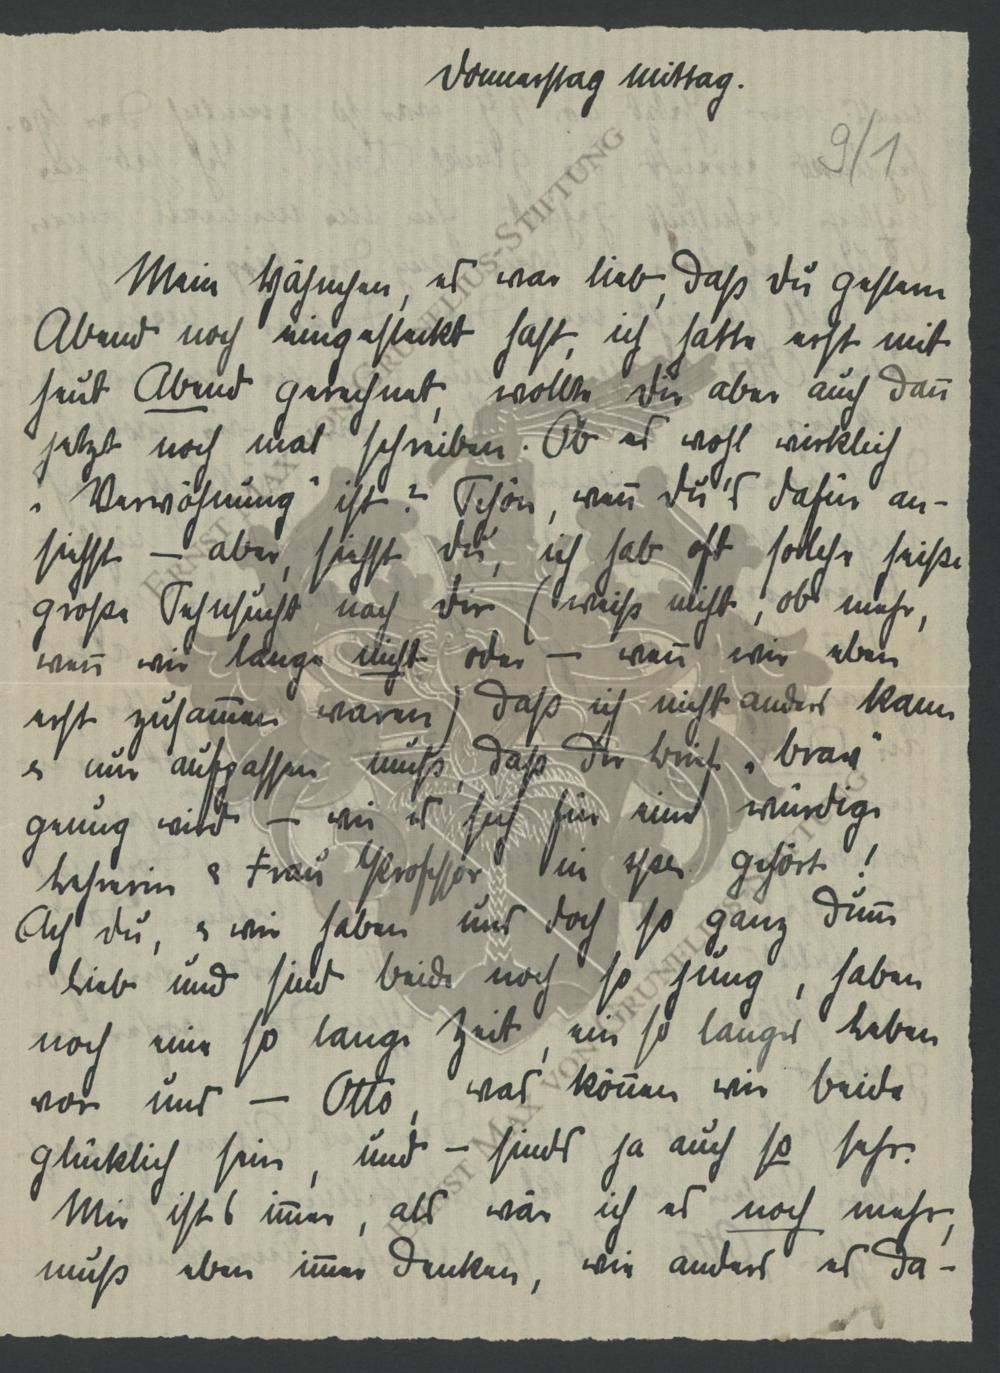 Donnerstag Mittag.
9/1
Mein Hähnchen, es war lieb, daß Du gestern
Abend noch eingesteckt hast, ich hatte erst mit
heut Abend gerechnet, wollte dir aber auch dan̅
jetzt noch mal schreiben. Ob es wohl wirklich
„Verwöhnung" ist? Schön, wen̅ Du's dafür an-
siehst – aber, siehst du, ich hab oft solche heiße
große Sehnsucht nach dir (weiß nicht, ob mehr,
wen̅ wir lange nicht oder – wen̅ wir eben
erst zusam̅en waren) daß ich nicht anders kann
& nur aufpassen muß, daß der Brief „brav"
genug wird – wie es sich für eine würdige
Lehrerin & Frau Professor in gehört!
Ach du, & wir haben uns doch so ganz dum̅
lieb und sind beide noch so jung, haben
noch eine so lange Zeit, ein so langes Leben
vor uns – Otto, was kön̅en wir beide
glücklich sein, und – sinds ja auch so sehr.
Mir ists im̅er, als wär ich es noch mehr,
muß eben im̅er denken, wie anders es da-
ERNST MAX VON GRUNELIUS-STIFTUNG
ERNST MAX VON GRUNELIUS-STIFTUNG